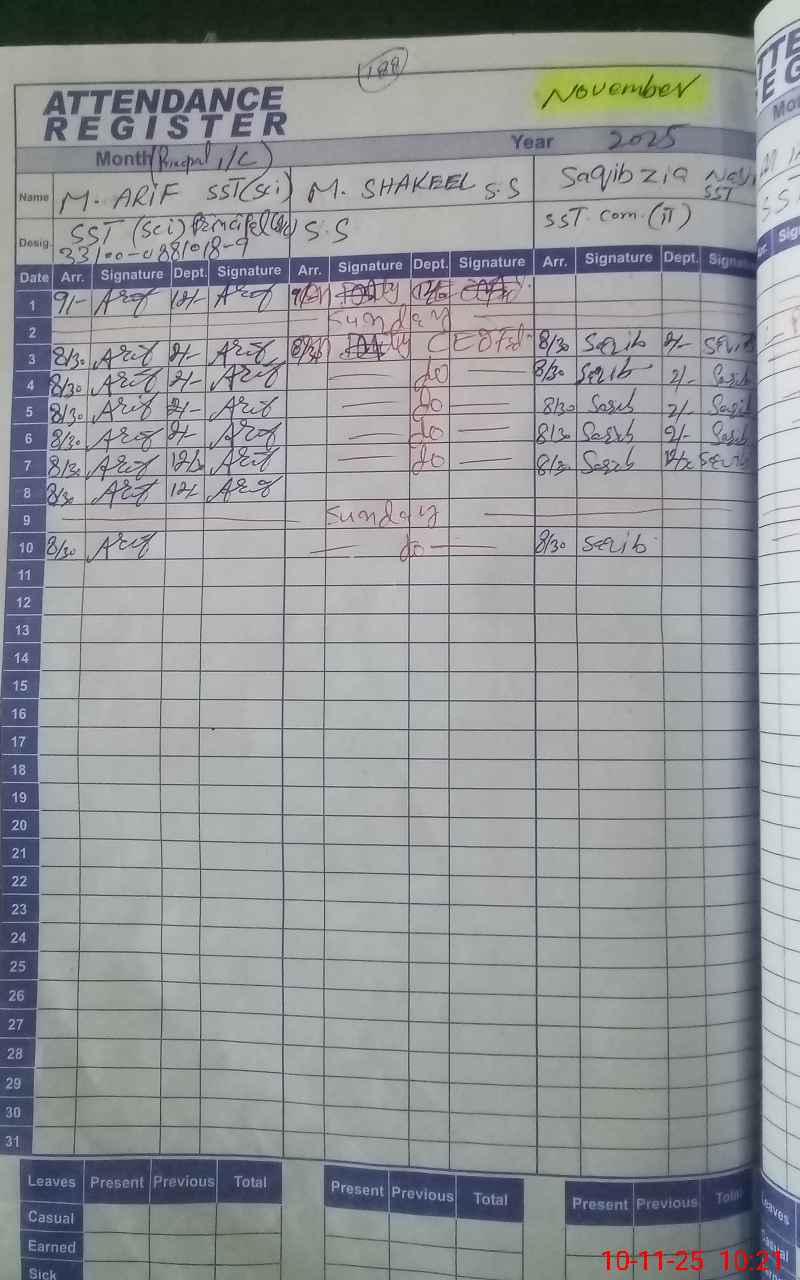 188
ATTENDANCE
REGISTER
November
Month (Principal I/C)
Year 2025
Name M. ARIF SST(Sci) M. SHAKEEL S.S Saqib zia SST
Desig. SST (Sci) Principal S.S SST. com. (IT)
33100-0881018-9
Date Arr. Signature Dept. Signature Arr. Signature Dept. Signature Arr. Signature Dept. Signat
1 9/- Arif 12/- Arif
2 Sunday
3 8/30 Arif 2/- Arif CEO Fsd 8/30 Saqib 2/- Saqib
4 8/30 Arif 2/- Arif do 8/30 Saqib 2/- Saqib
5 8/30 Arif 2/- Arif do 8/30 Saqib 2/- Saqib
6 8/30 Arif 2/- Arif do 8/30 Saqib 2/- Saqib
7 8/30 Arif 12/30 Arif do 8/30 Saqib 12/30 Saqib
8 8/30 Arif 12/- Arif
9 Sunday
10 8/30 Arif do 8/30 Saqib
11
12
13
14
15
16
17
18
19
20
21
22
23
24
25
26
27
28
29
30
31
Leaves Present Previous Total Present Previous Total Present Previous Total
Casual
Earned
Sick
10-11-25 10:21